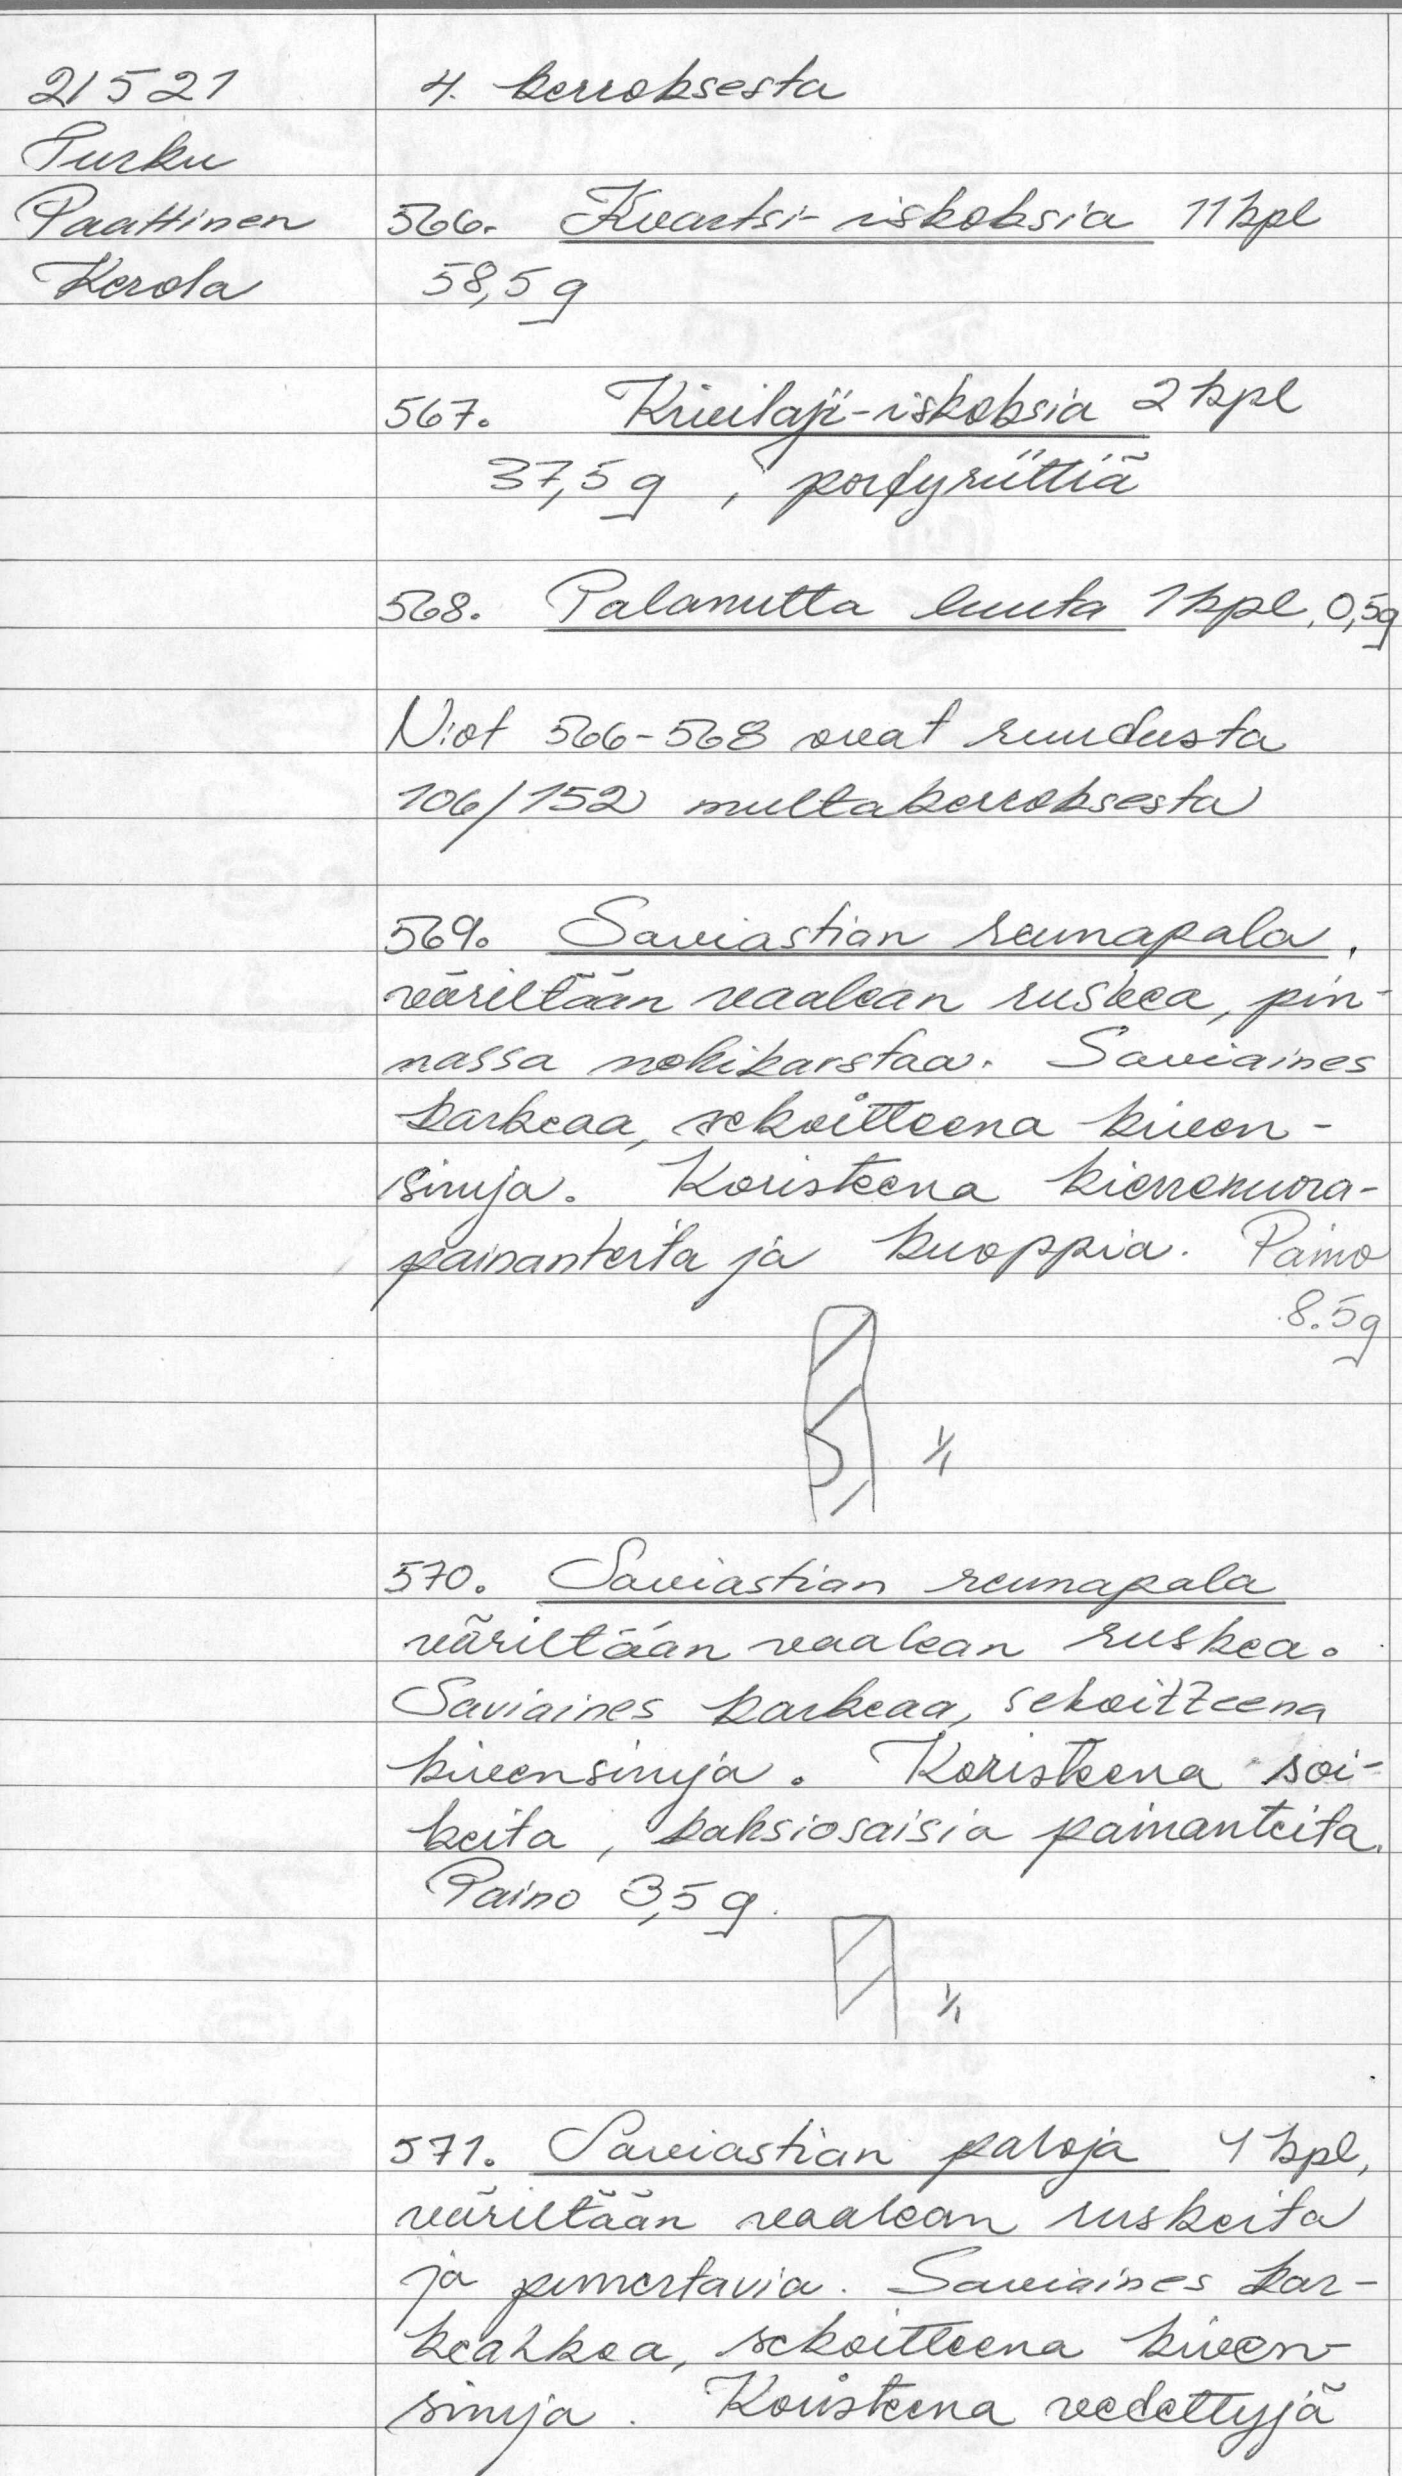 21521
Turku
Paattinen
Kerola
4. kerroksesta
566. Kvartsi-iskoksia 11 kpl
58,5 g
567. Kivilaji-iskoksia 2 kpl
37,5 g , porfyriittiä
568. Palanutta luuta 1 kpl, 0,5g
N:ot 566-568 ovat ruudusta
106/152 multakerroksesta
569. Saviastian reunapala,
väriltään vaalean ruskea, pin-
nassa nokikarstaa. Saviaines
karkeaa, sekoitteena kiven-
siruja. Koristeena kierrenuora-
painanteita ja kuoppia. Paino
8.5g
1/1
570. Saviastian reunapala
väriltään vaalean ruskea.
Saviaines karkeaa, sekoitteena
kivensiruja. Koristeena soi-
keita, kaksiosaisia painanteita.
Paino 3,5 g.
1/1
571. Saviastian paloja 4 kpl,
väriltään vaalean ruskeita
ja punertavia. Saviaines kar-
keahkoa, sekoitteena kiven-
siruja. Koristeena vedettyjä